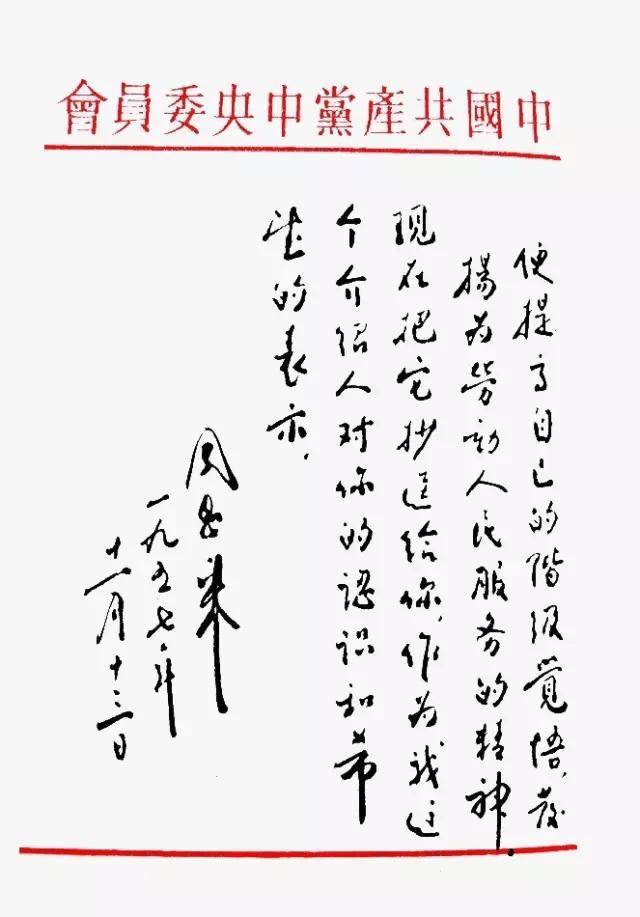 中國共產黨中央委員會
便提高自己的階級覺悟，發
揚为勞动人民服务的精神．
现在把它抄送给你，作为我这
个介绍人对你的認识和希
望的表示．
周恩来
一九五七年
十一月十三日